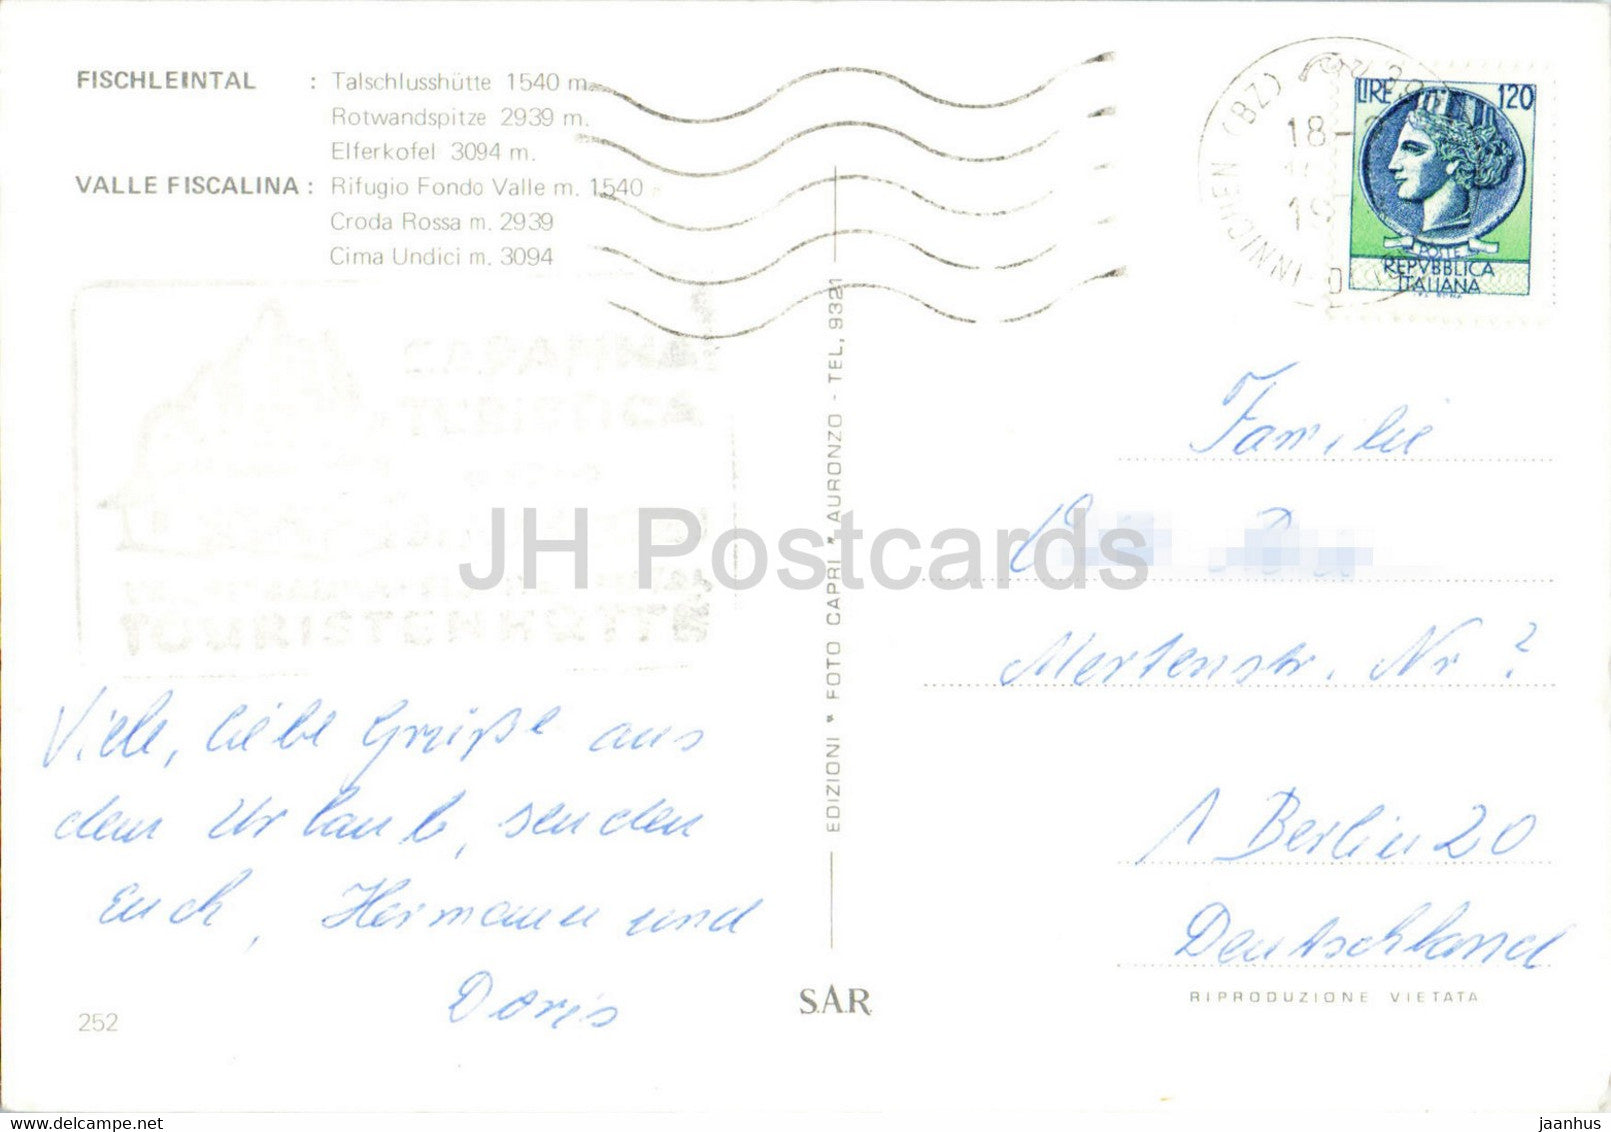 FISCHLEINTAL : Talschlusshütte 1540 m.
Rotwandspitze 2939 m.
Elferkofel 3094 m.
VALLE FISCALINA : Rifugio Fondo Valle m. 1540
Croda Rossa m. 2939
Cima Undici m. 3094
Viele, liebe Grüße aus
dem Urlaub, senden
Euch, Hermann und
Doris
252
EDIZIONI * FOTO CAPRI * AURONZO - TEL. 9321
S.A.R.
INNICHEN (BZ)
18
LIRE 120
POSTE
REPVBBLICA
ITALIANA
Familie
Mertenstr. Nr ?
1 Berlin 20
Deutschland
RIPRODUZIONE VIETATA
JH Postcards
jaanhus
www.delcampe.net